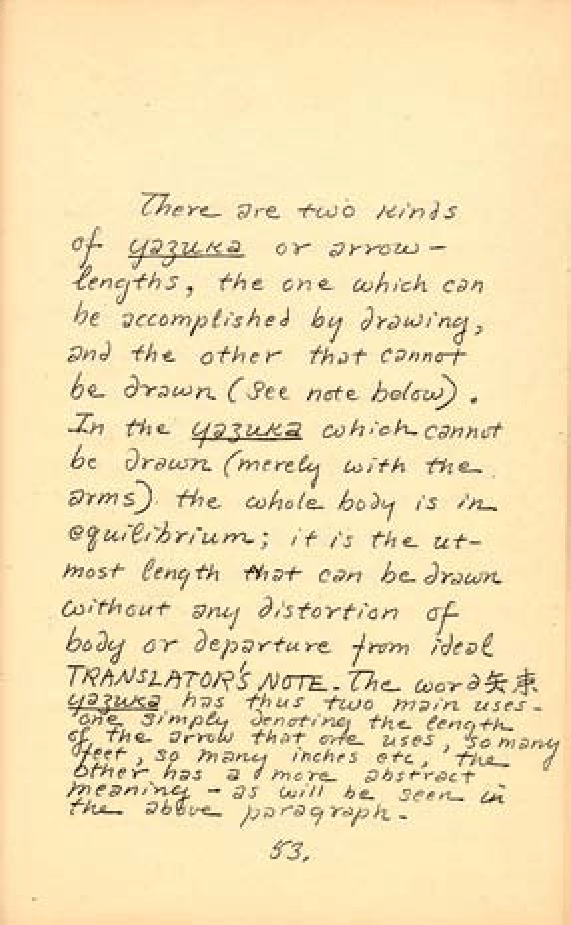 There are two kinds
of yazuka or arrow-
lengths, the one which can
be accomplished by drawing,
and the other that cannot
be drawn (See note below).
In the yazuka which cannot
be drawn (merely with the
arms) the whole body is in
equilibrium; it is the ut-
most length that can be drawn
without any distortion of
body or departure from ideal
TRANSLATOR'S NOTE. The word 矢束
yazuka has thus two main uses-
one simply denoting the length
of the arrow that one uses, so many
feet, so many inches etc, the
other has a more abstract
meaning - as will be seen in
the above paragraph.
53.